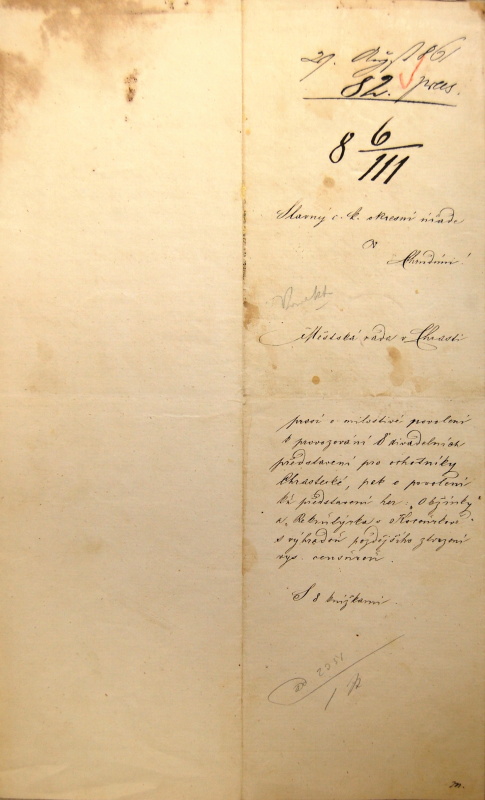 29. Aug 861
82. praes.
8 6/111
Slavný c. k. okresní úřade
v
Chrudimi!
Městská rada v Chrasti
prosí o milostivé povolení
k provozování 8 divadelních
představení pro ochotníky
Chrastecké, pak o povolení
ku představení her: „Obžínky"
a
s výhradou pozdějšího
vys. censurou.
S 8 knížkami.